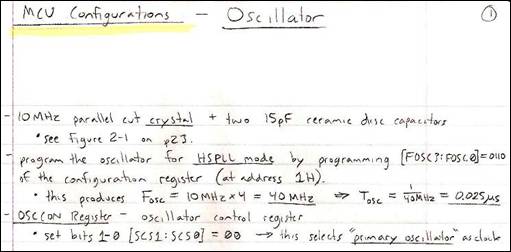 MCU Configurations - Oscillator ①
- 10MHz parallel cut crystal + two 15pF ceramic disc capacitors
• see Figure 2-1 on p23.
- program the oscillator for HSPLL mode by programming [FOSC3:FOSC0]=0110
of the configuration register (at address 1H).
• this produces Fosc = 10MHz×4 = 40MHz ⇒ Tosc = 1/40MHz = 0.025μs
- OSCCON Register - oscillator control register
• set bits 1-0 [SCS1:SCS0] = 00 → this selects "primary oscillator" as clock